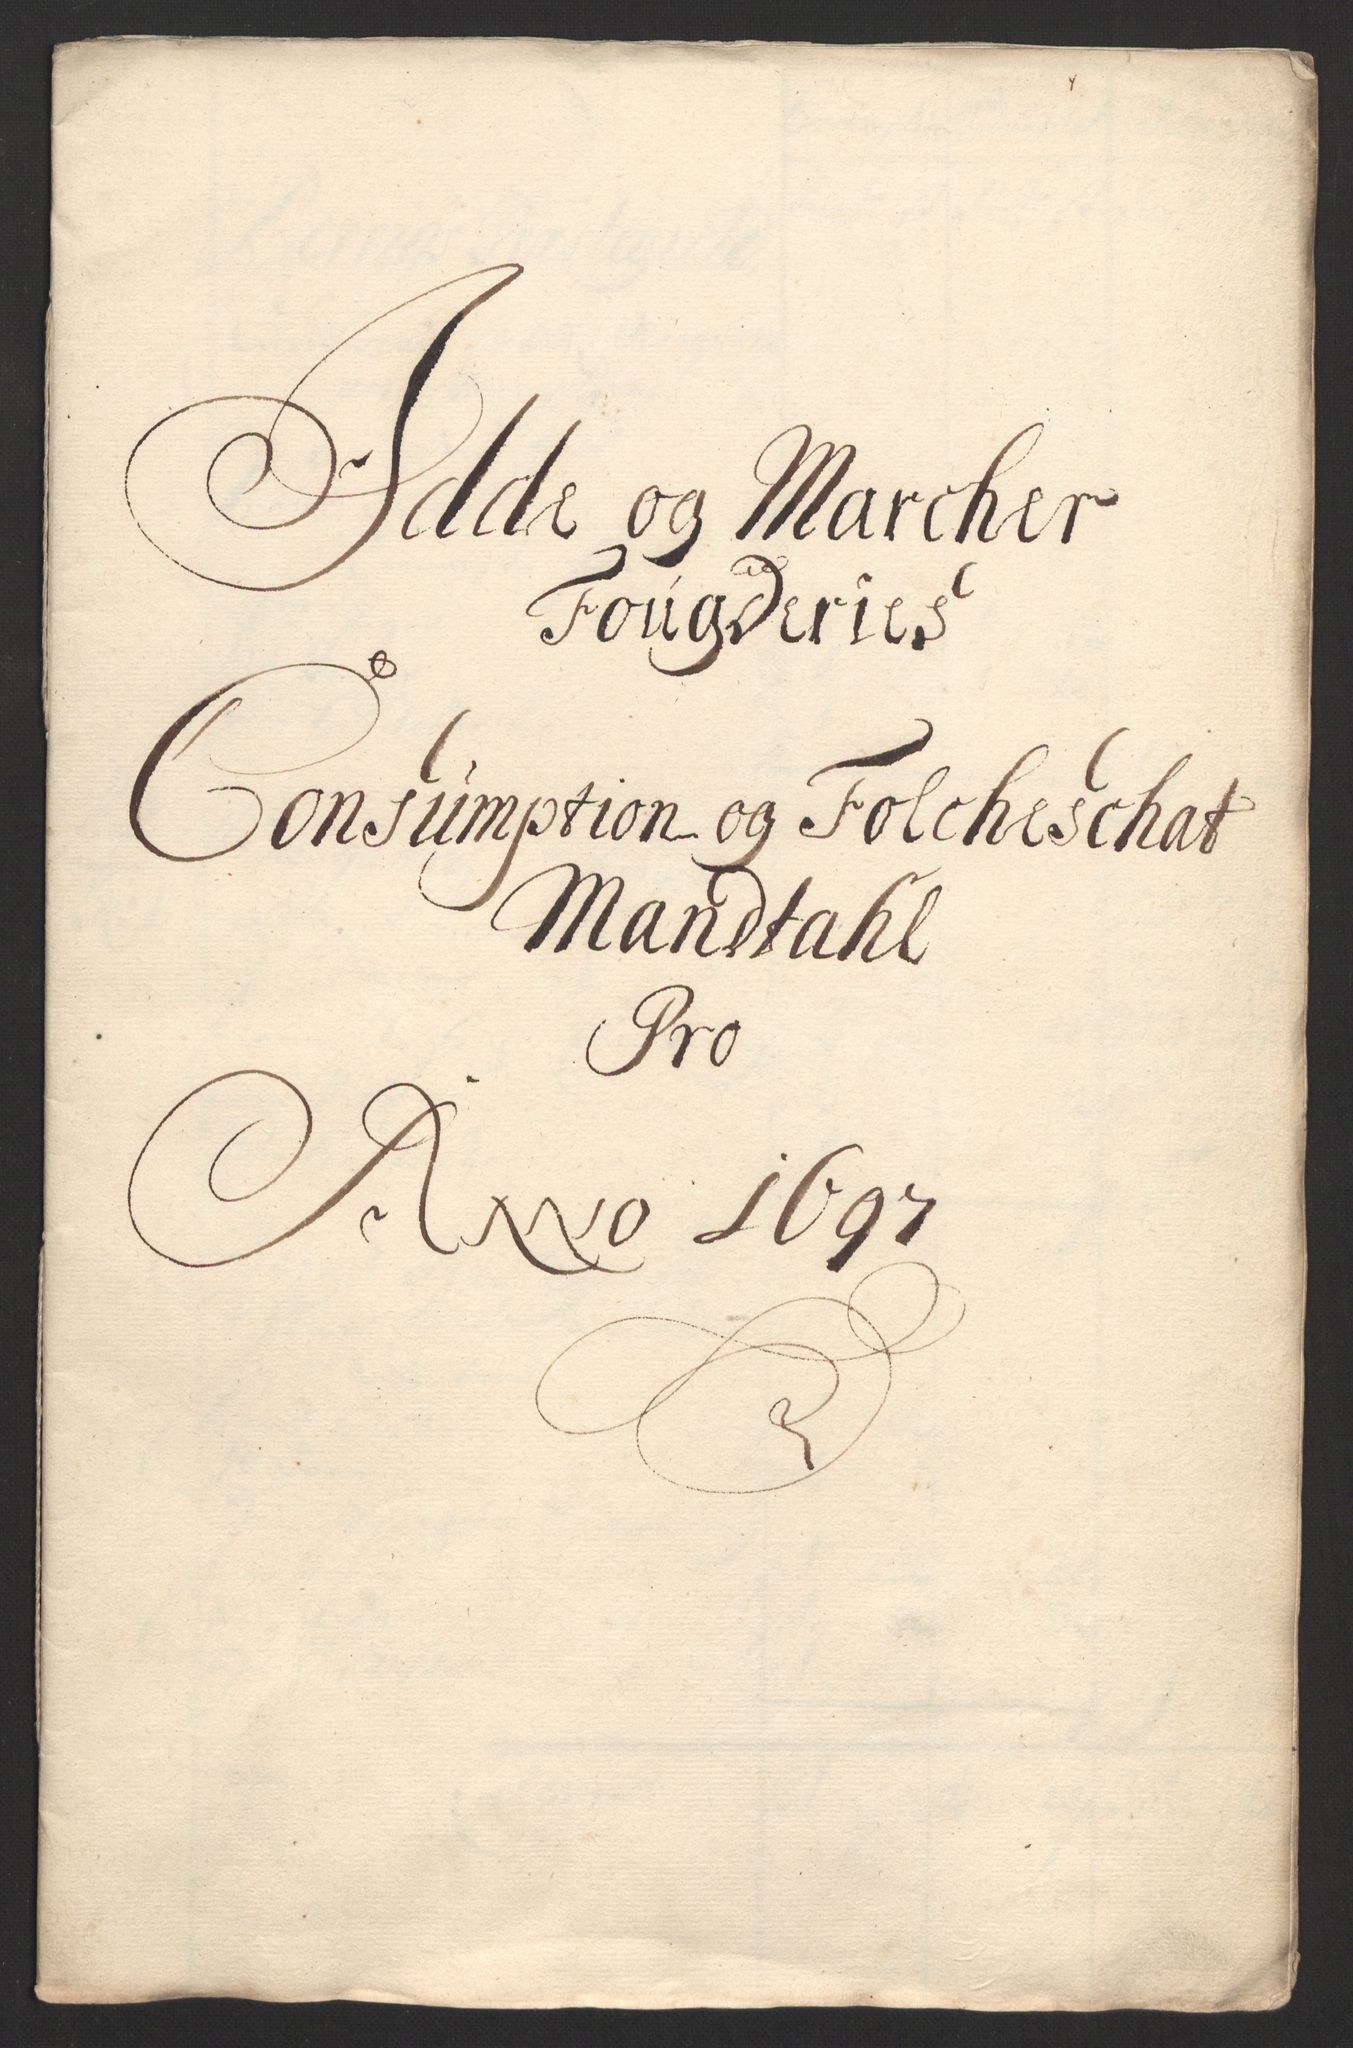 Idde og Marcher
Fougderies
Consumption og Folcheschat
Mandtahl
Pro
Anno 1697